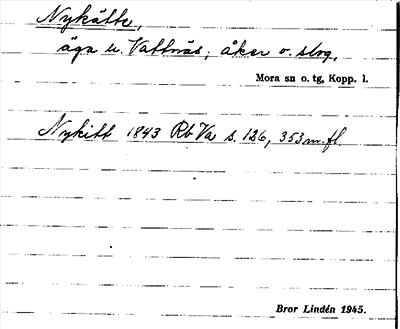 Nykätte,
äga u. Vattnäs; åker o. skog,
Mora sn o. tg, Kopp. l.
Nykitt 1843 Rb Va s. 126, 353 m. fl.
Bror Lindén 1945.